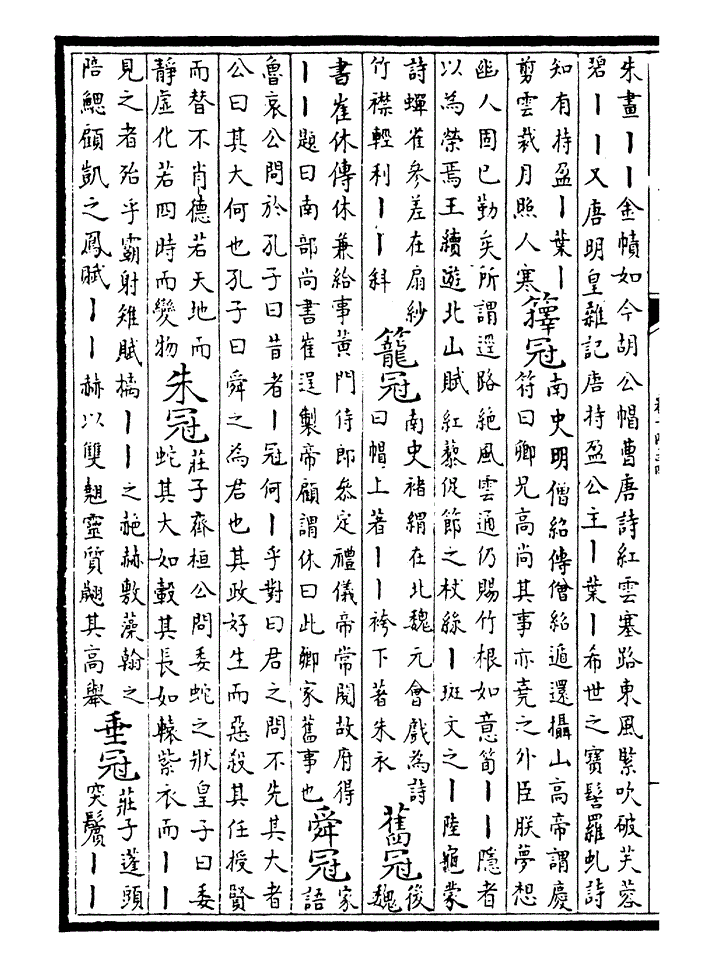 朱畫丨丨金幘如今胡公帽曹唐詩紅雲塞路東風緊吹破芙蓉
碧丨丨又唐明皇雜記唐持盈公主丨葉丨希世之寶髻羅虬詩
知有持盈丨葉丨
剪雲裁月照人寒
籜冠
南史明僧紹傳僧紹遁還攝山高帝謂慶
符曰卿兄高尚其事亦堯之外臣朕夢想
幽人固已勤矣所謂逕路絶風雲通仍賜竹根如意筍丨丨隱者
以為榮焉王績遊北山賦紅藜促節之杖絲丨斑文之丨陸龜蒙
詩蟬雀參差在扇紗
竹襟輕利丨丨斜
籠冠
南史褚緭在北魏元會戲為詩
曰帽上著丨丨袴下著朱衣
舊冠
後
魏
書崔休傳休兼給事黄門侍郎參定禮儀帝常閱故府得
丨丨題曰南部尚書崔逞製帝顧謂休曰此卿家舊事也
舜冠
家
語
魯哀公問於孔子曰昔者丨冠何丨乎對曰君之問不先其大者
公曰其大何也孔子曰舜之為君也其政好生而惡殺其任授賢
而替不肖德若天地而
靜虛化若四時而變物
朱冠
莊子齊桓公問委蛇之狀皇子曰委
蛇其大如轂其長如轅紫衣而丨丨
見之者殆乎霸射雉賦橘丨丨之赩赫敷藻翰之
陪鰓顧凱之鳳賦丨丨赫以雙翹靈質翽其高舉
垂冠
莊子蓬頭
突鬢丨丨